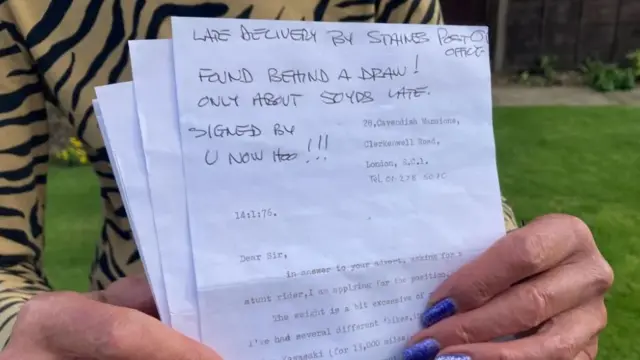 LATE DELIVERY BY STAINES POST OFFICE.
FOUND BEHIND A DRAW!
ONLY ABOUT 50YDS LATE.
SIGNED BY
U NOW HOO !!!
78,Cavendish Mansions,
Clerkenwell Road,
London, E.C.1.
Tel. 01-278
14:1:76.
Dear Sir,
in answer to your advert, asking for a
stunt rider,I am applying for the position.
The weight is a bit excessive
I've had several different bikes,
Kawasaki (for 13,000 miles